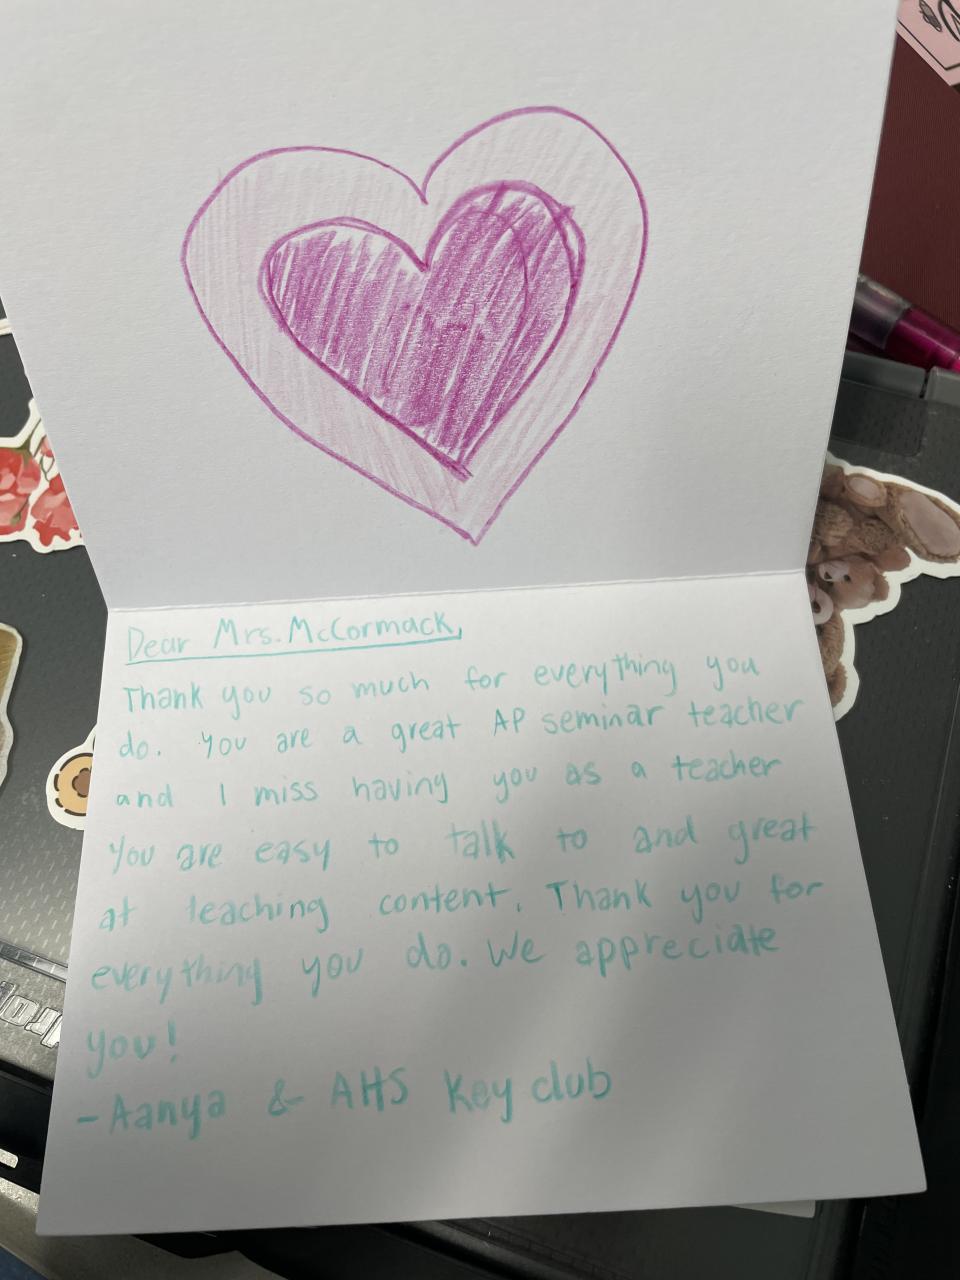 Dear Mrs. McCormack,
Thank you so much for everything you
do. You are a great AP seminar teacher
and I miss having you as a teacher
You are easy to talk to and great
at teaching content. Thank you for
everything you do. We appreciate
you!
-Aanya & AHS Key club